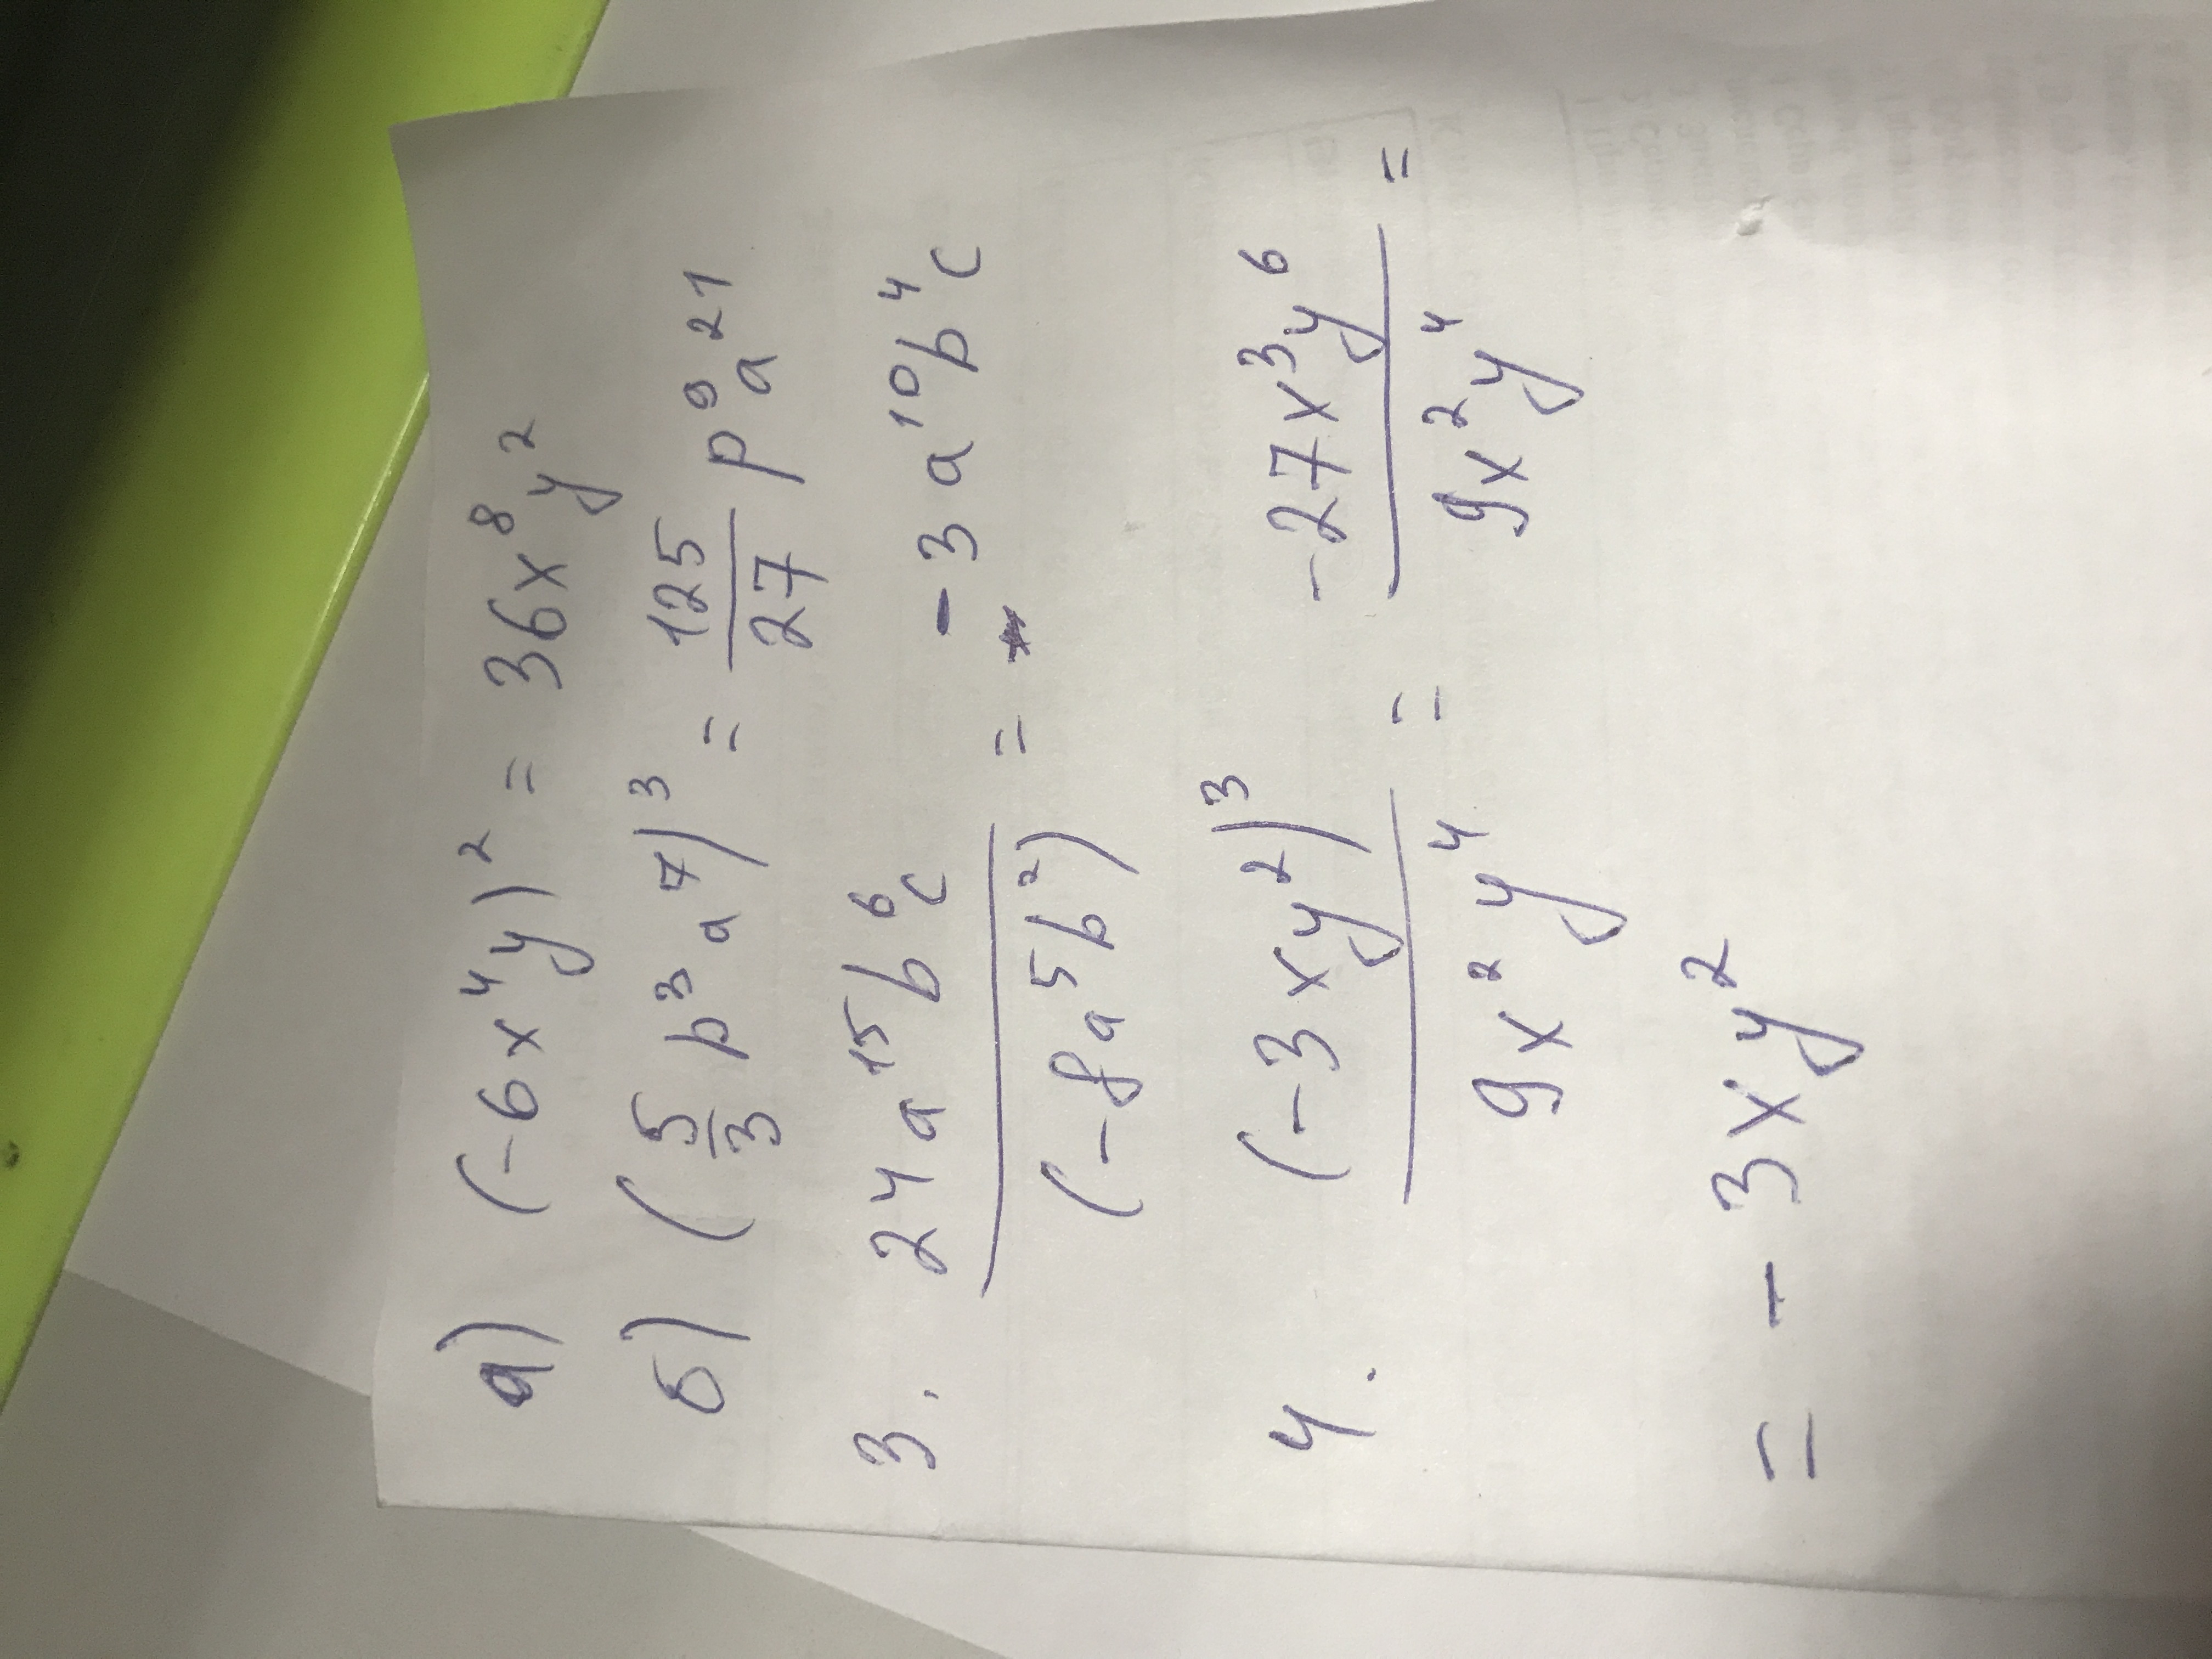 а) (-6x⁴y)² = 36x⁸y²
б) (5/3 p³a⁷)³ = 125/27 p⁹a²¹
3. 24a¹⁵b⁶c / (-8a⁵b²) = -3a¹⁰b⁴c
4. (-3xy²)³ / 9x²y⁴ = -27x³y⁶ / 9x²y⁴ =
= -3xy²